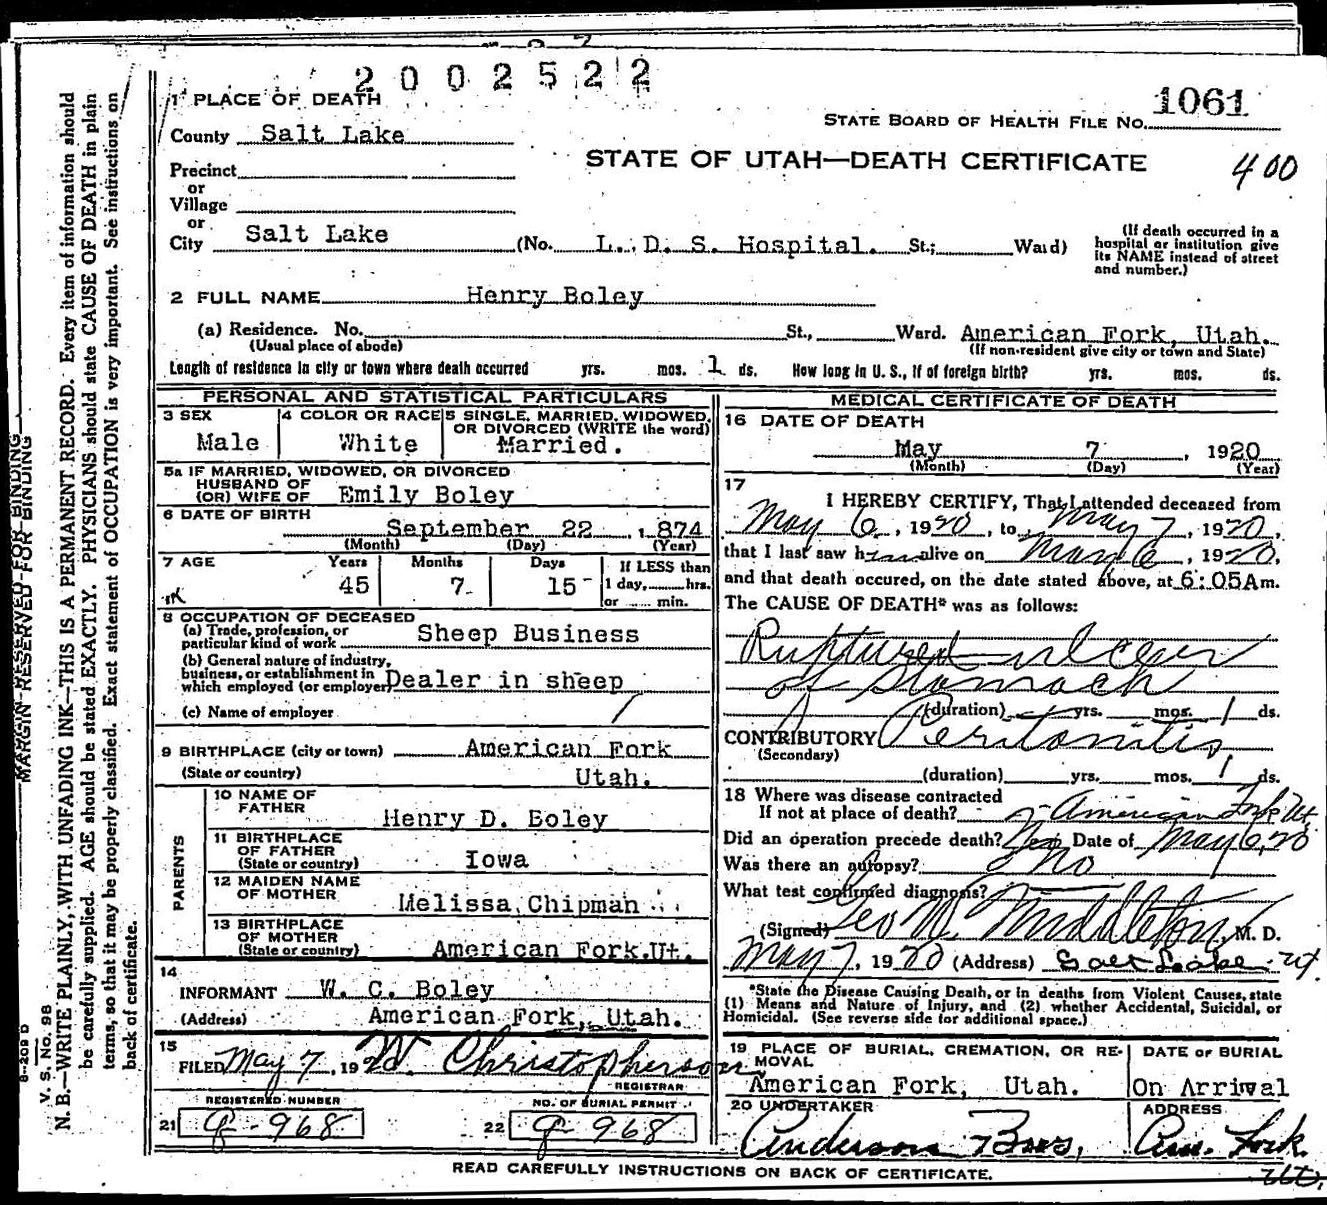 2002522
1 PLACE OF DEATH
STATE BOARD OF HEALTH FILE No. 1061
County Salt Lake
STATE OF UTAH—DEATH CERTIFICATE
400
Precinct
or
Village
or
City Salt Lake (No. L. D. S. Hospital. St.; Ward)
(If death occurred in a
hospital or institution give
its NAME instead of street
and number.)
2 FULL NAME Henry Boley
(a) Residence. No. St., Ward. American Fork, Utah.
(Usual place of abode) (If non-resident give city or town and State)
Length of residence in city or town where death occurred yrs. mos. 1 ds. How long in U. S., if of foreign birth? yrs. mos. ds.
PERSONAL AND STATISTICAL PARTICULARS
3 SEX
Male
4 COLOR OR RACE
White
5 SINGLE, MARRIED, WIDOWED,
OR DIVORCED (WRITE the word)
Married.
5a IF MARRIED, WIDOWED, OR DIVORCED
HUSBAND OF
(OR) WIFE OF Emily Boley
6 DATE OF BIRTH
September 22, 1874
(Month) (Day) (Year)
7 AGE Years Months Days If LESS than
45 7 15 1 day, hrs.
or min.
8 OCCUPATION OF DECEASED
(a) Trade, profession, or
particular kind of work Sheep Business
(b) General nature of industry,
business, or establishment in
which employed (or employer) Dealer in sheep
(c) Name of employer
9 BIRTHPLACE (city or town) American Fork
(State or country) Utah.
PARENTS
10 NAME OF
FATHER Henry D. Boley
11 BIRTHPLACE
OF FATHER
(State or country) Iowa
12 MAIDEN NAME
OF MOTHER Melissa Chipman
13 BIRTHPLACE
OF MOTHER
(State or country) American Fork.Ut.
14
INFORMANT W. C. Boley
(Address) American Fork, Utah.
15
FILED May 7, 1920 W. Christopherson
REGISTRAR
REGISTERED NUMBER NO. OF BURIAL PERMIT
21 G-968 22 G-968
MEDICAL CERTIFICATE OF DEATH
16 DATE OF DEATH
May 7, 1920
(Month) (Day) (Year)
17
I HEREBY CERTIFY, That I attended deceased from
May 6, 1920, to May 7, 1920,
that I last saw him alive on May 6, 1920,
and that death occured, on the date stated above, at 6:05A m.
The CAUSE OF DEATH* was as follows:
Ruptured ulcer
of stomach
(duration) yrs. mos. 1 ds.
CONTRIBUTORY Peritonitis
(Secondary)
(duration) yrs. mos. 1 ds.
18 Where was disease contracted
If not at place of death? American Fork Ut.
Did an operation precede death? Yes Date of May 6, 20
Was there an autopsy? No
What test confirmed diagnosis?
(Signed) Geo W. Middleton, M. D.
May 7, 1920 (Address) Salt Lake Ut.
*State the Disease Causing Death, or in deaths from Violent Causes, state
(1) Means and Nature of Injury, and (2) whether Accidental, Suicidal, or
Homicidal. (See reverse side for additional space.)
19 PLACE OF BURIAL, CREMATION, OR RE-
MOVAL
American Fork, Utah.
DATE OF BURIAL
On Arrival
20 UNDERTAKER
Anderson Bros,
ADDRESS
Am. Fork.
Ut.
READ CAREFULLY INSTRUCTIONS ON BACK OF CERTIFICATE.
MARGIN RESERVED FOR BINDING
V. S. No. 98
N. B.—WRITE PLAINLY, WITH UNFADING INK—THIS IS A PERMANENT RECORD. Every item of information should
be carefully supplied. AGE should be stated EXACTLY. PHYSICIANS should state CAUSE OF DEATH in plain
terms, so that it may be properly classified. Exact statement of OCCUPATION is very important. See instructions on
back of certificate.